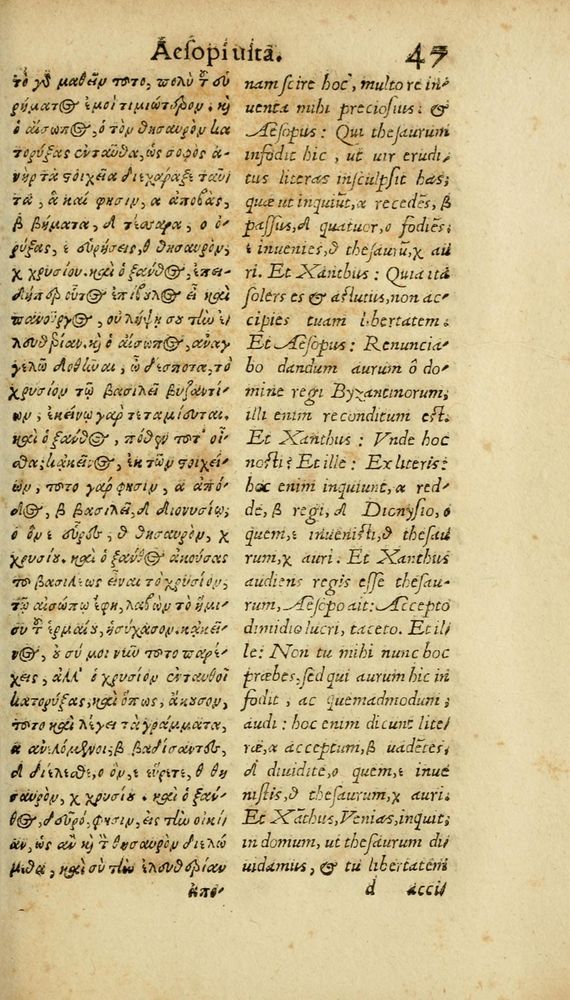 Aesopi uita. 47
τὸ γὸ μαθεῖν τοῦτο, πολὺ τ συ
ρήματος ἐμοὶ τιμιώτερον. κὴ
ὁ αἴσωπος, ὁ τὸν θησαυρὸν κα
τορύξας ἐνταῦθα, ὡς σοφὸς ἀ-
νὴρ τὰ στοιχεῖα διεχάραξε ταῦ
τα, ἃ καί φησιν, α ἀποβὰς,
β βήματα, δ τέσσαρα, ο ὀ-
ρύξας, ε εὑρήσεις, θ θησαυρὸν,
χ χρυσίου. καὶ ὁ ξάνθος, ἐπει-
δήπερ οὕτως ἐπίβουλος εἶ καὶ
πανοῦργος, οὐ λήψῃ σου τὴν ἐ-
λευθερίαν. κὴ ὁ αἴσωπος, ἀναγ
γελῶ δοθῆναι, ὦ δέσποτα, τὸ
χρυσίον τῷ βασιλεῖ βυζαντί-
ων, ἐκείνῳ γὰρ τεταμίευται.
καὶ ὁ ξάνθος, πόθεν τοῦτ' οἶ-
θα; κἀκεῖνος, ἐκ τῶν στοιχεί-
ων, τοῦτο γάρ φησιν, α ἀπό-
δος, β βασιλεῖ, δ διονυσίῳ,
ο ὃν ε εὗρες, θ θησαυρὸν, χ
χρυσίου. καὶ ὁ ξάνθος ἀκούσας
τοῦ βασιλέως εἶναι τὸ χρυσίον,
τῷ αἰσώπῳ ἔφη, λαβὼν τὸ ἥμι-
συ τ ἑρμαίου, ἡσύχασον. κἀκεῖ-
νος, οὐ σύ μοι νῦν τοῦτο παρέ-
χεις, ἀλλ' ὁ χρυσίον ἐνταυθοῖ
κατορύξας, καὶ ὅπως, ἄκουσον,
τοῦτο καὶ λέγει τὰ γράμματα,
α ἀνελόμενοι, β βαδίσαντες,
δ διέλεσθε, ο ὃν, ε εὕρετε, θ θη
σαυρὸν, χ χρυσίου. καὶ ὁ ξάν-
θος, δεῦρό, φησιν, εἰς τὴν οἰκί-
αν, ὡς ἂν κὴ τ θησαυρὸν διελώ
μεθα, καὶ σὺ τὴν ἐλευθερίαν
ἀπο-
nam scire hoc, multo re in-
uenta mihi preciosius: &
Aesopus: Qui thesaurum
infodit hic, ut uir erudi-
tus literas insculpsit has,
quæ ut inquiũt, α recedẽs, β
passus, δ quatuor, ο fodiẽs,
ε inuenies, θ thesaurũ, χ au
ri. Et Xanthus: Quia ita
solers es & astutus, non ac-
cipies tuam libertatem.
Et Aesopus: Renuncia-
bo dandum aurum ô do-
mine regi Byzantinorum,
illi enim reconditum est.
Et Xanthus: Vnde hoc
nosti? Et ille: Ex literis:
hoc enim inquiunt, α red-
de, β regi, δ Dionysio, ο
quem, ε inuenisti, θ thesau
rum, χ auri. Et Xanthus
audiens regis esse thesau-
rum, Aesopo ait: Accepto
dimidio lucri, taceto. Et il-
le: Non tu mihi nunc hoc
præbes, sed qui aurum hic in
fodit, ac quemadmodum,
audi: hoc enim dicunt lite-
ræ, α acceptum, β uadẽtes,
δ diuidite, ο quem, ε inue
nistis, θ thesaurum, χ auri.
Et Xãthus, Venias, inquit,
in domum, ut thesaurum di
uidamus, & tu libertatem
d accis